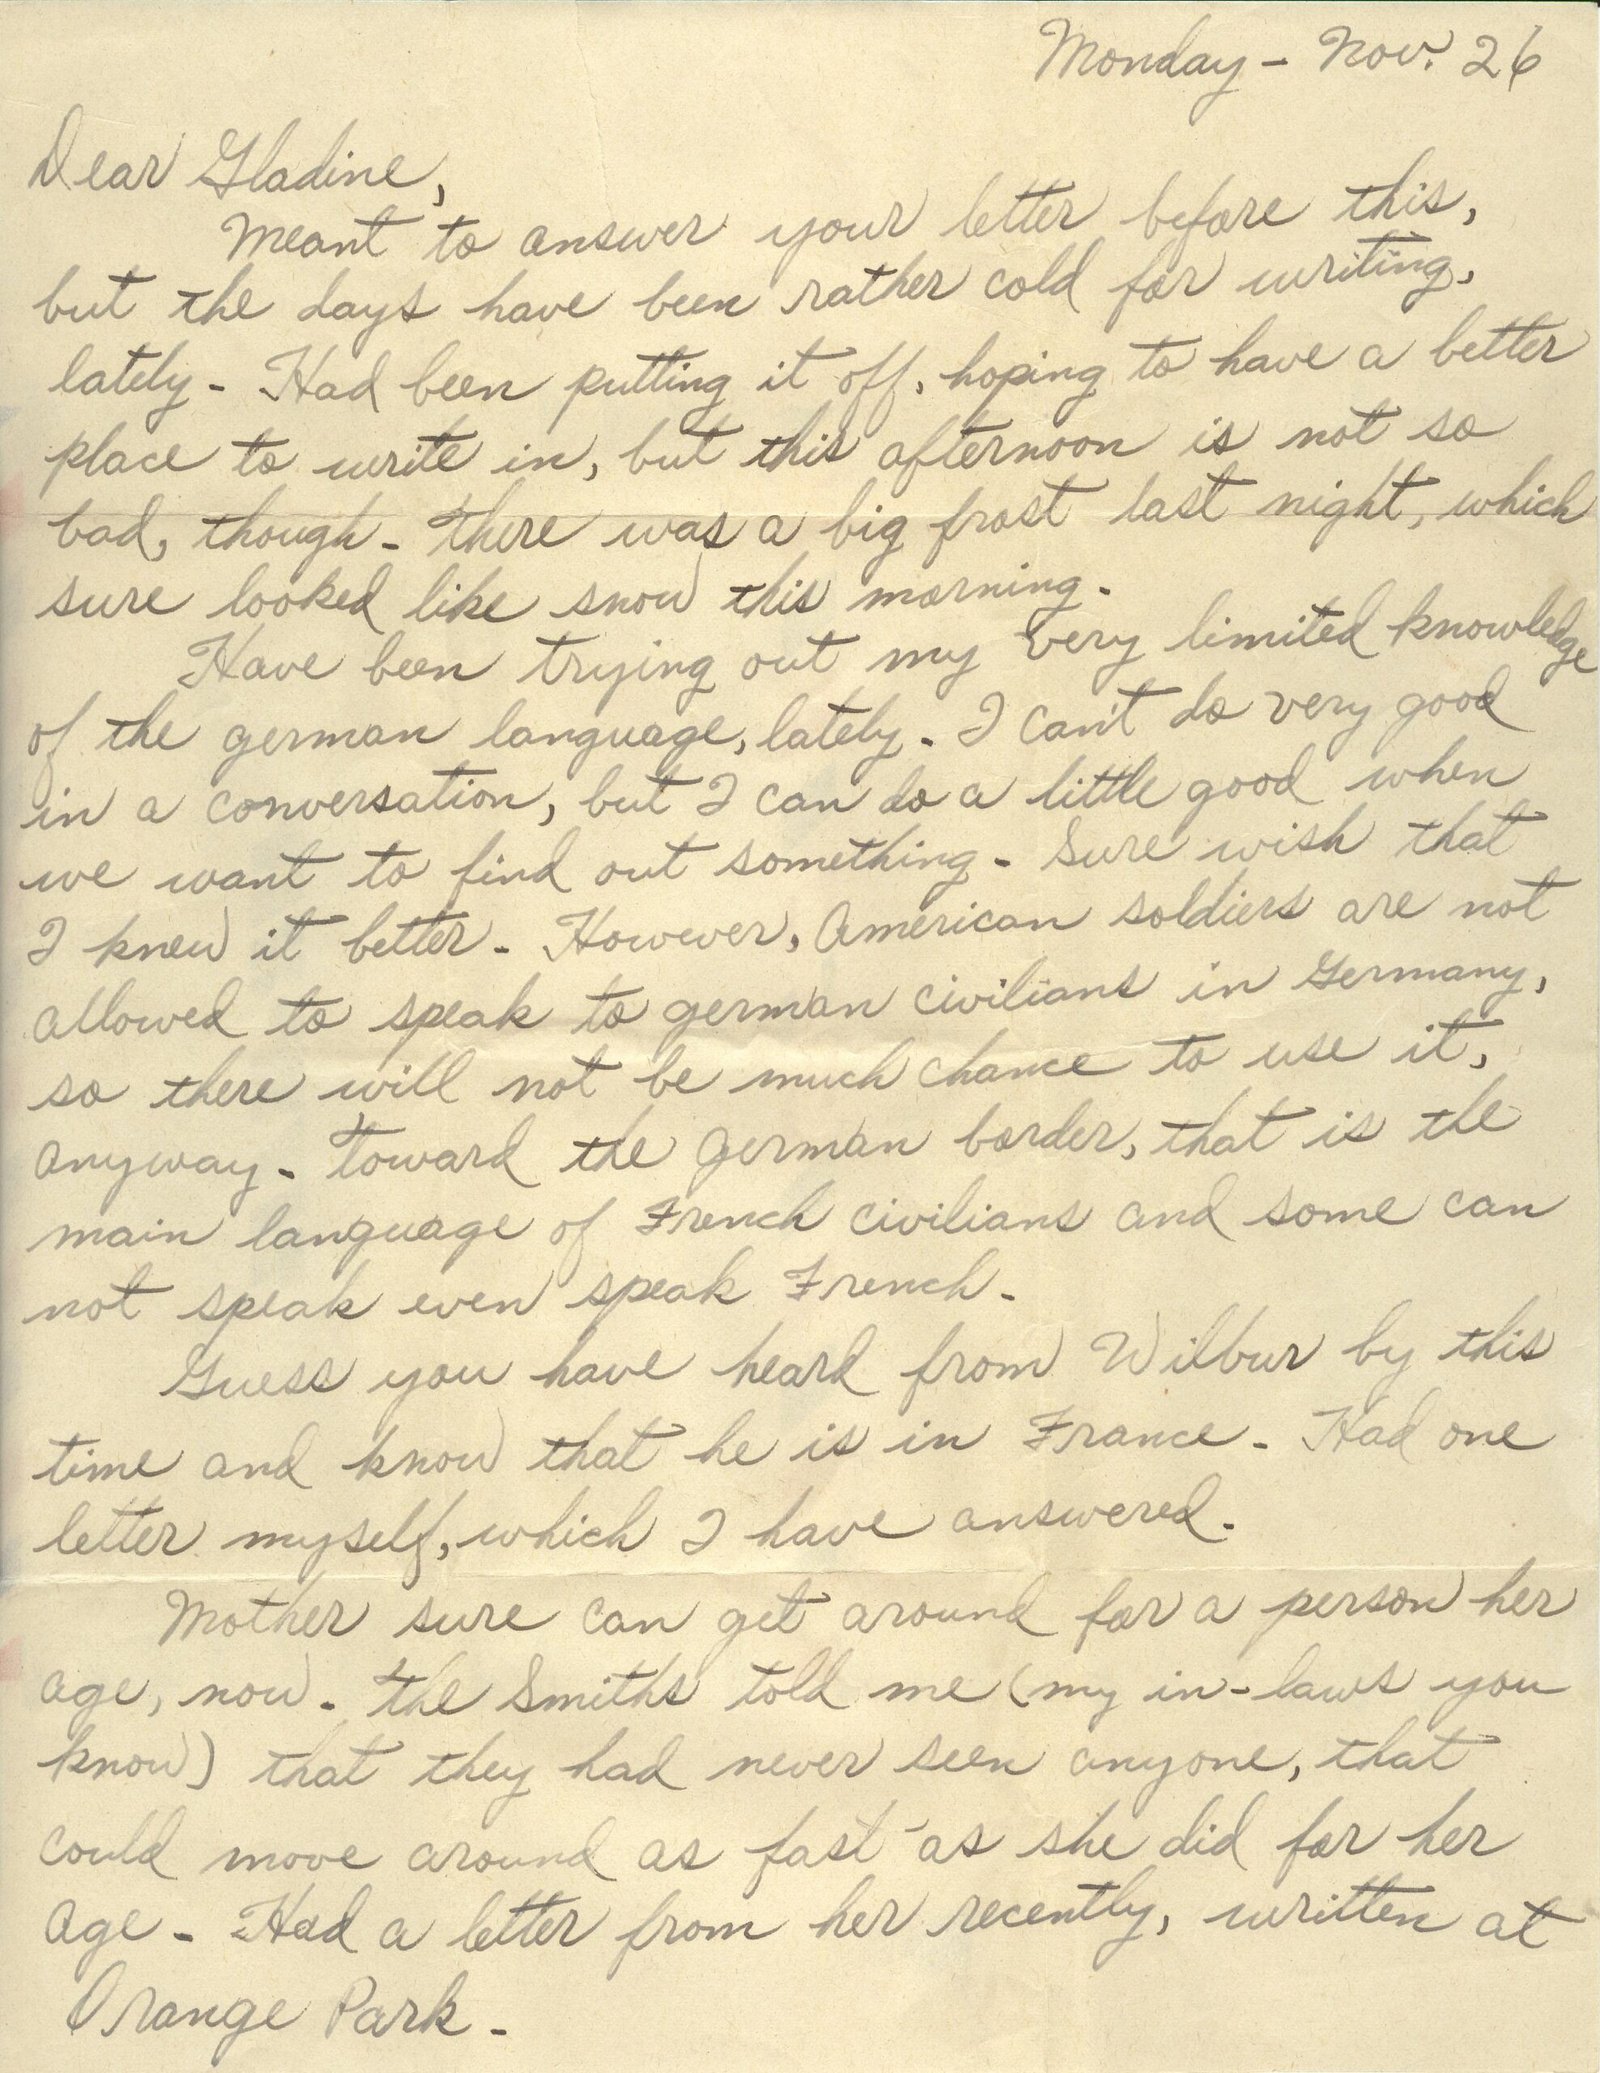 Monday - Nov. 26
Dear Gladine,
Meant to answer your letter before this,
but the days have been rather cold for writing,
lately - Had been putting it off, hoping to have a better
place to write in, but this afternoon is not so
bad, though - There was a big frost last night, which
sure looked like snow this morning -
Have been trying out my very limited knowledge
of the german language, lately - I can't do very good
in a conversation, but I can do a little good when
we want to find out something - Sure wish that
I knew it better - However, American soldiers are not
allowed to speak to german civilians in Germany,
so there will not be much chance to use it,
anyway - Toward the german border, that is the
main language of French civilians and some can
not speak even speak French -
Guess you have heard from Wilbur by this
time and know that he is in France - Had one
letter myself, which I have answered -
Mother sure can get around for a person her
age, now - The Smiths told me (my in-laws you
know) that they had never seen anyone, that
could move around as fast as she did for her
age - Had a letter from her recently, written at
Orange Park -